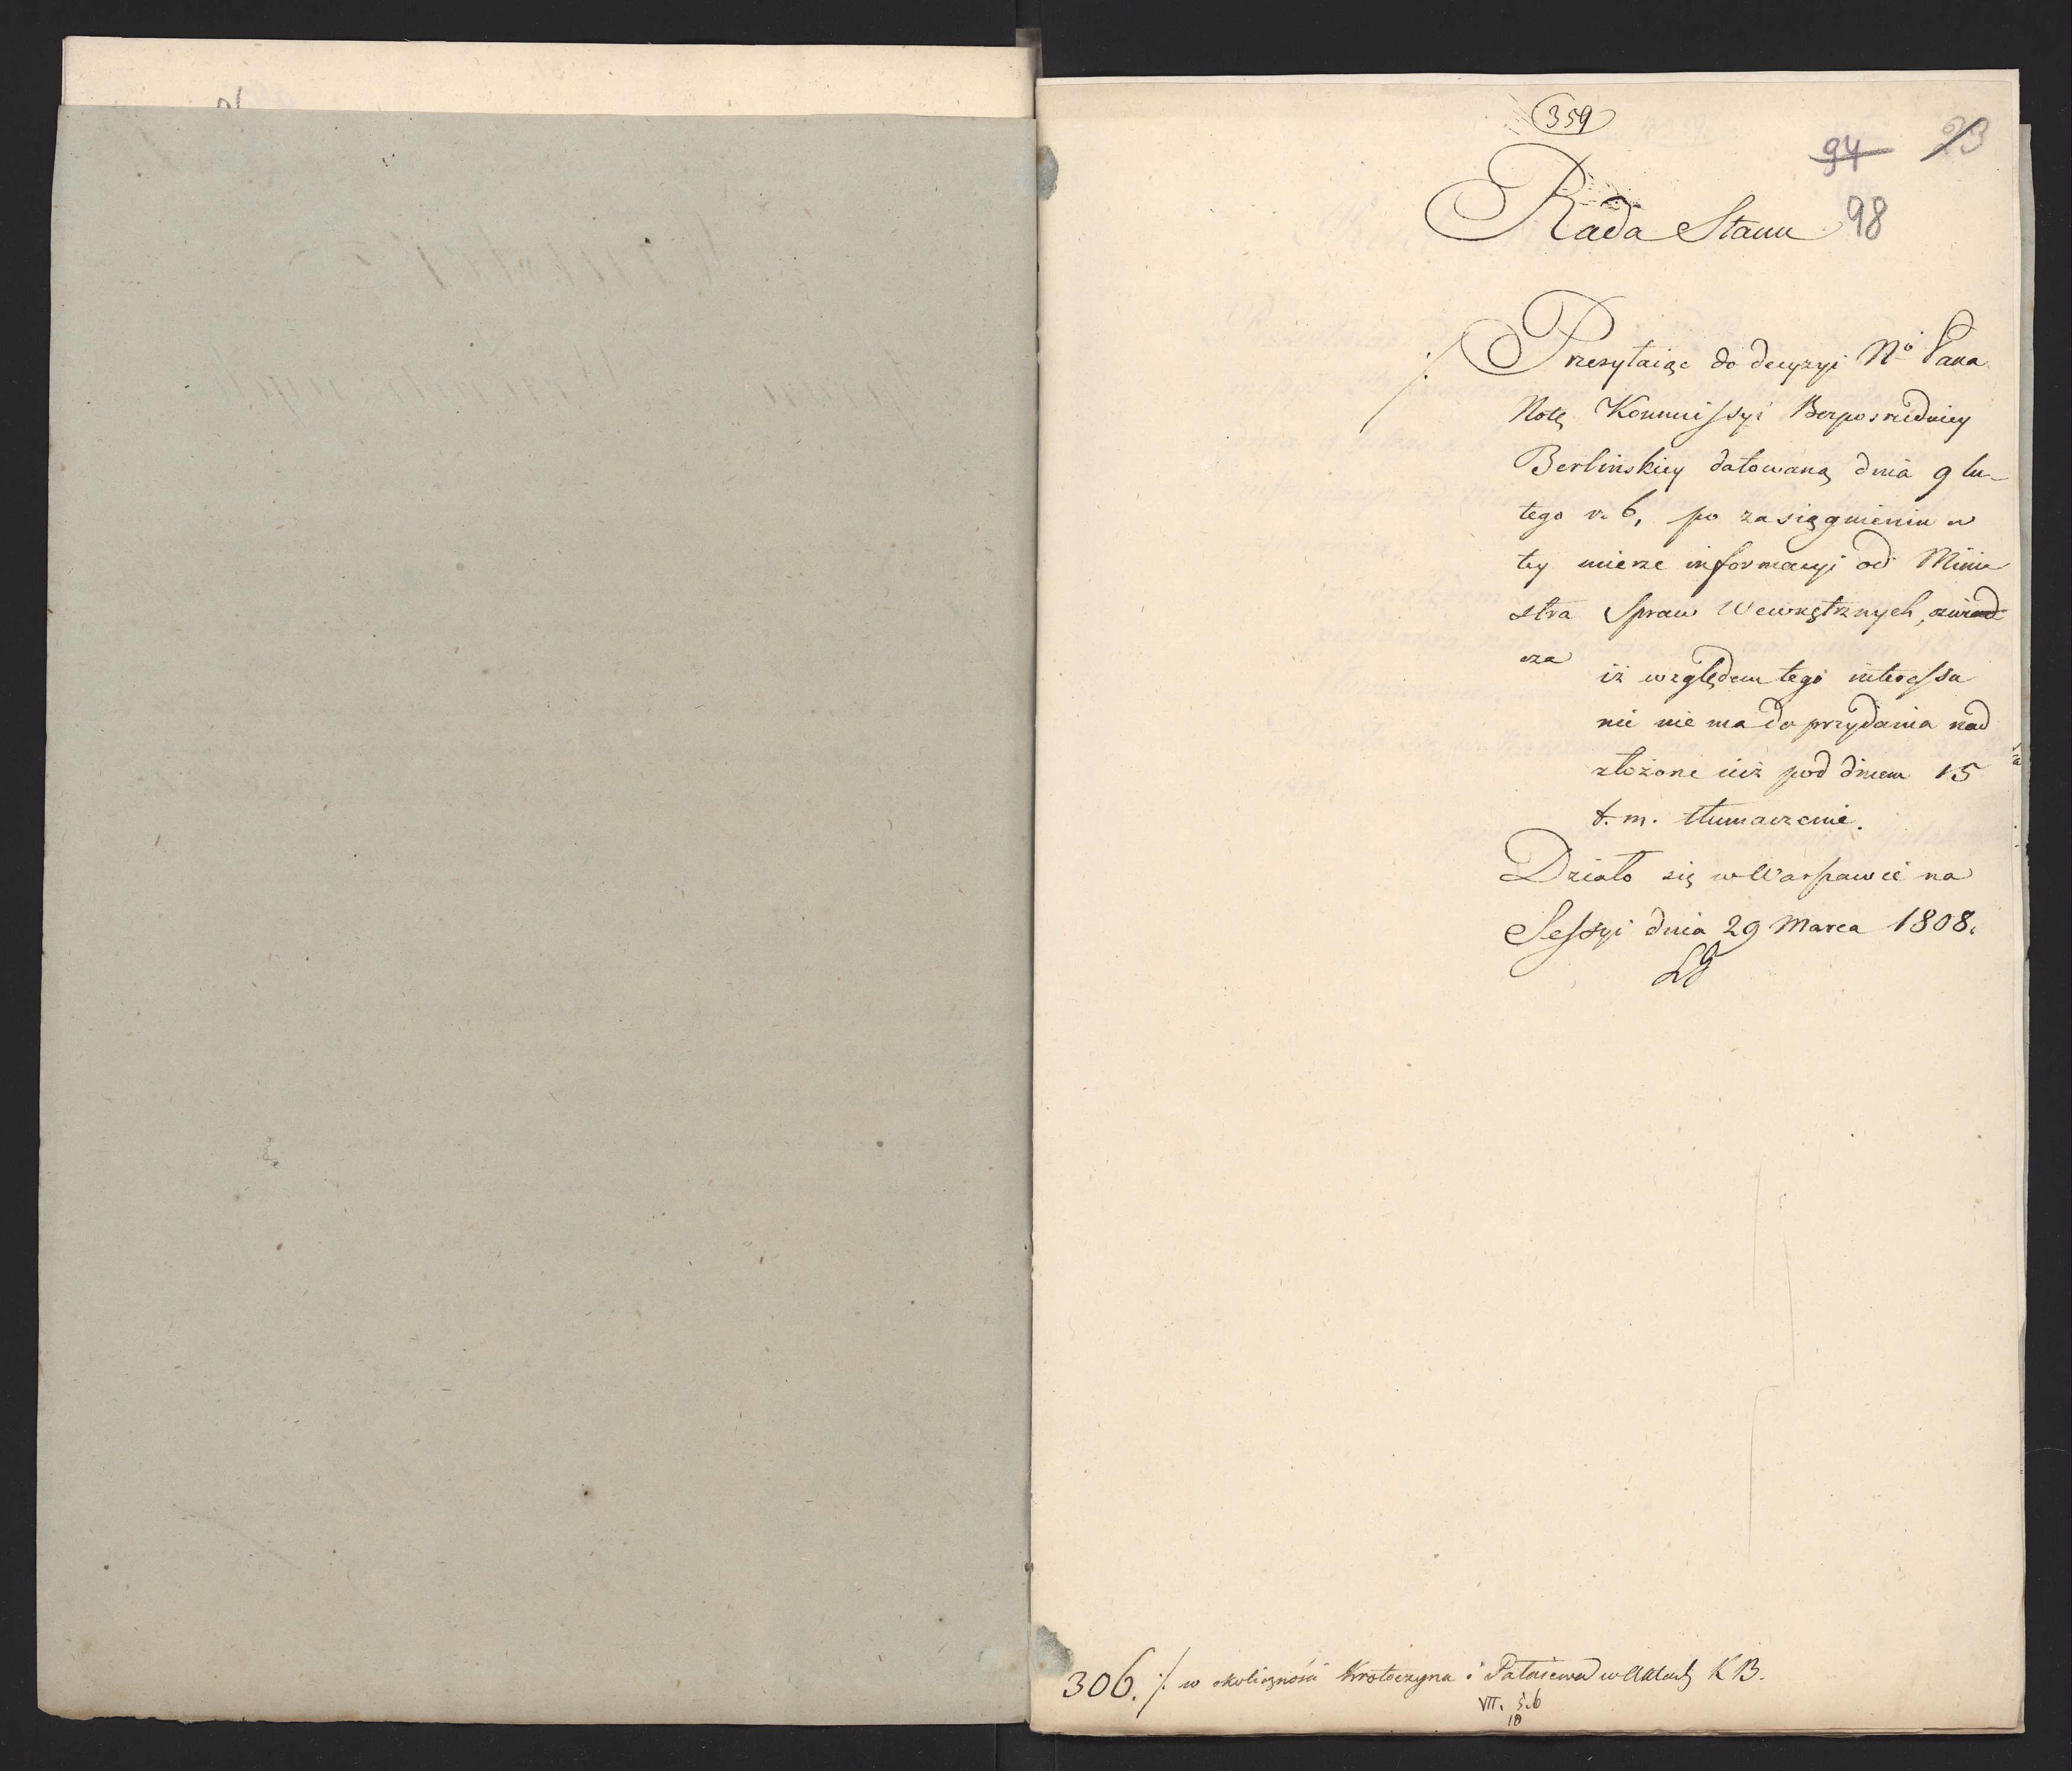 359
94 23
98
Rada Stanu
Przesyłaiąc do decyzyi Nº Pana
Notę Kommissyi Bezposredniey
Berlinskiey datowaną dnia 9 lu-
tego r. b, po zasiągnieniu w
tey mierze informacyi od Mini
stra Spraw Wewnętrznych, oswiad
cza
iż względem tego interessu
nic nie ma do przydania nad
złożone iuż pod dniem 15
t. m. tłumaczenie.
Działo się w Warszawie na
Sessyi dnia 29 Marca 1808.
306. ./. w okoliczności Krotoczyna i w Aktach K B.
VII. 5.6
18